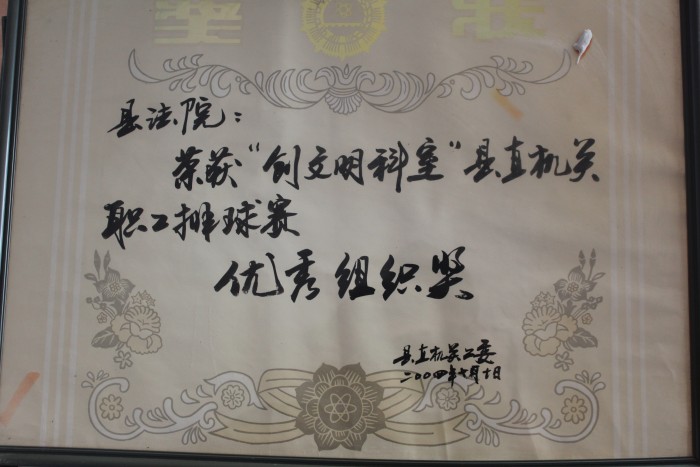 奖状
县法院：
荣获“创文明科室”县直机关
职工排球赛
优秀组织奖
县直机关工委
二00四年七月十日